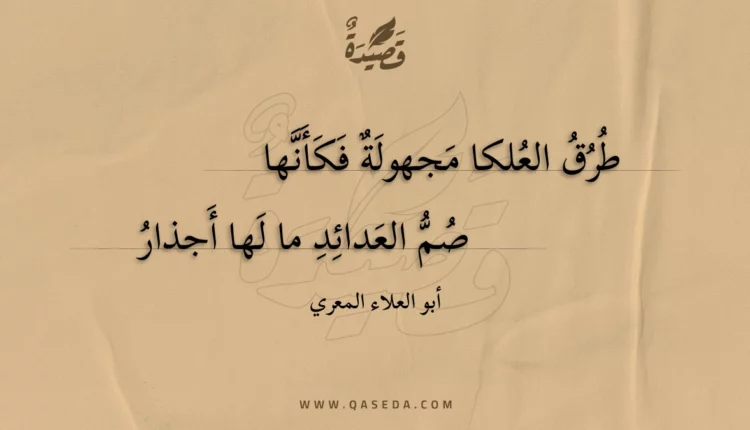 قَصِيدَةٌ
طُرُقُ العُلكا مَجهولَةٌ فَكَأَنَّها
صُمُّ العَدائِدِ ما لَها أَجذارُ
أبو العلاء المعري
WWW.QASEDA.COM